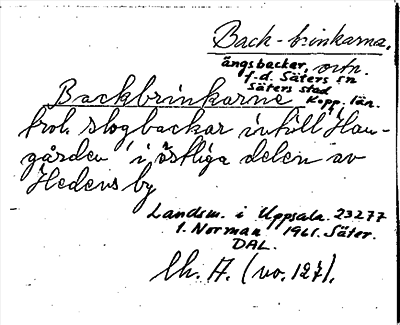 Back-brinkarna,
ängsbackar, ortn.
f.d. Säters sn
Säters stad
Kopp. län.
Backbrinkarne
troh. slogbackar intill Han-
gården i östliga delen av
Hedens by
Landsm. i Uppsala. 23277
1. Norman 1961. Säter.
DAL.
lh. A. (vo. 127).